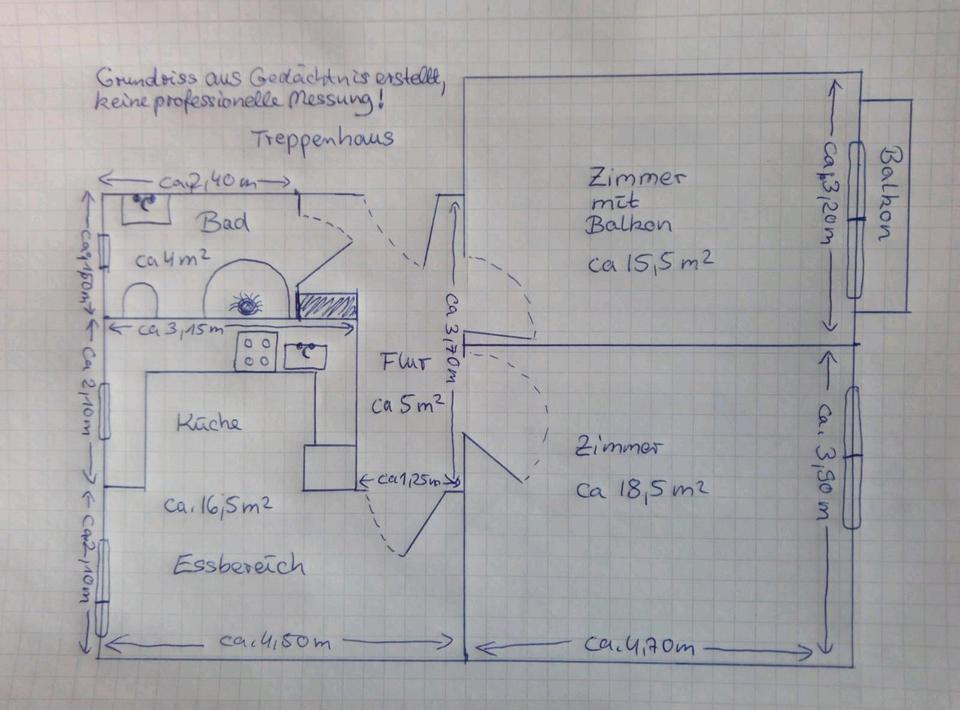 Grundriss aus Gedächtnis erstellt,
keine professionelle Messung!
Treppenhaus
ca 2,40m
Bad
ca 4m²
ca 1,60m
ca 3,15m
ca 2,10m
Küche
ca. 16,5m²
Essbereich
ca 2,10m
ca. 4,50m
Flur
ca 5m²
ca 3,70m
ca 1,25m
Zimmer
mit
Balkon
ca 15,5m²
ca. 3,20m
Balkon
Zimmer
ca 18,5m²
ca. 3,90m
ca. 4,70m